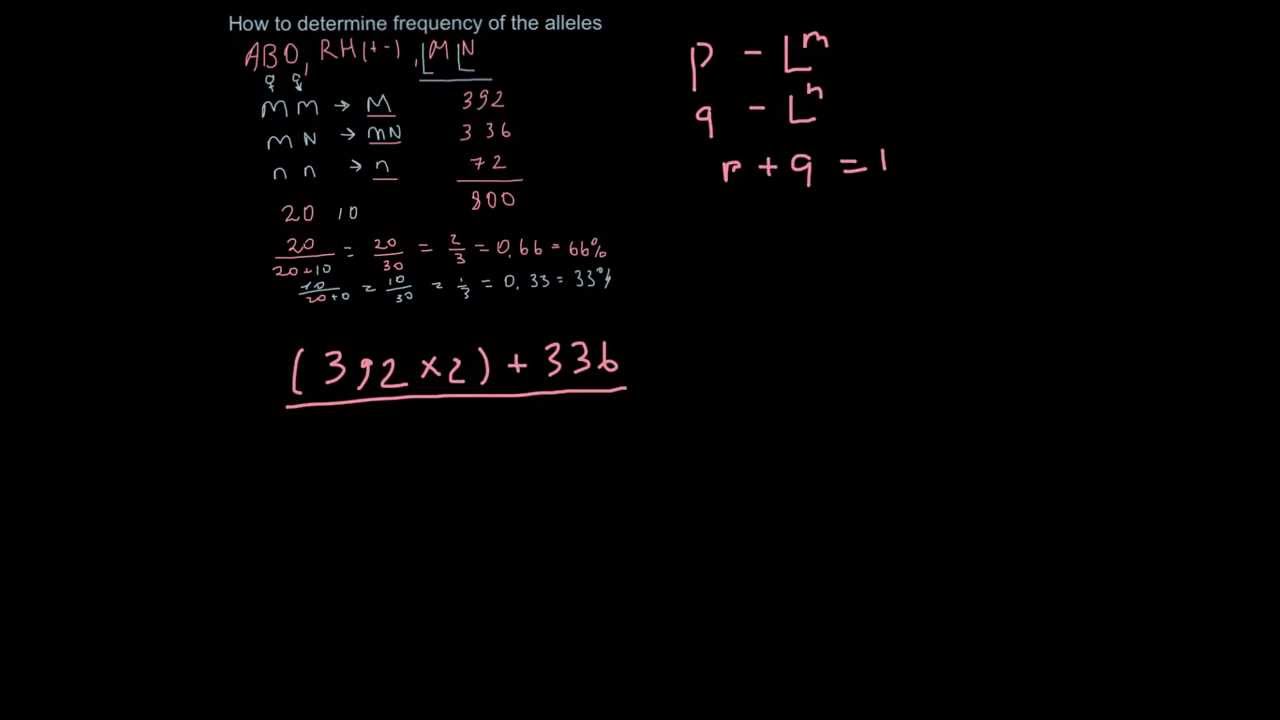 How to determine frequency of the alleles
ABO, RH(+-), LM LN
♀ ♀
MM → M 392
MN → mN 336
nn → n 72
800
20 10
20/20+10 = 20/30 = 2/3 = 0.66 = 66%
10/20+0 = 10/30 = 1/3 = 0.33 = 33%
(392 × 2) + 336
p - Lᵐ
q - Lⁿ
p + q = 1